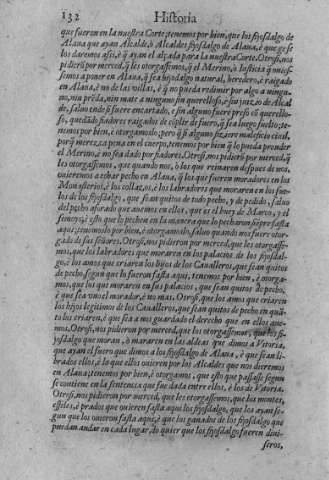 132 Historia
que fueron en la nuestra Corte tenemos por bien, que los fijosdalgo de
Alaua que ayan Alcalde, ò Alcaldes fijosdalgo de Alaua, è que ge se
los daremos assi, è q̃ ayan el alçada para la nuestra Corte. Otrosi, nos
pidierõ por merced, q̃ les otorgassemos, q̃ el Merino, ò Iusticia q̃ uuies-
semos a poner en Alaua, q̃ sea hijodalgo natural, heredero, è raigado
en Alaua, è no de las villas, è q̃ no pueda redimir por algo a ningu-
no, nin prẽda, nin mate a ninguno sin querelloso, è su juizio de Alcal
de, saluo ende si fuere encartado, è si en alguno fuere preso cõ querello-
so, quedãdo fiadores raigados de cũplir de fuero, q̃ sea luego suelto; te-
nemos por bien, è otorgamoslo, pero q̃ si alguno fiziere maleficio atal,
porq̃ merezca pena en el cuerpo, tenemos por bien q̃ lo pueda prender
el Merino, è no sea dado por fiadores. Otrosi, nos pidierõ por merced, q̃
les otorgassemos, que quando nos, ò los que reinaren despues de nos,
ouieremos a echar pecho en Alaua, q̃ los que fueren moradores en los
Monasterios, è los collaços, è los labradores que moraren en los sue-
los de los fijosdalgo, que sean quitos de todo pecho, y de pedido, saluo
del pecho aforado que auemos en ellos, que es el buey de Março, y el
semoyo; è esto que lo pechen en la manera que lo pecharon siẽpre fasta
aqui; tenemoslo por bien, è otorgamoslo, saluo quando nos fuere otor-
gado de sus señores. Otrosi, nos pidieron por merced, que les otorgasse-
mos, que los labradores que moraren en los palacios de los fijosdal-
go, è los amos que criaren los hijos de los Caualleros, que sean quitos
de pecho segun que lo fueron fasta aqui, tenemos por bien, è otorga-
mos, que los que moraren en sus palacios, que sean quitos de pecho,
è que sea vno el morador, è no mas. Otrosi, que los amos que criaren
los hijos legitimos de los Caualleros, que sean quitos de pecho en quã-
to los criaren, è que sea a nos guardado el derecho que en ellos aue-
mos. Otrosi, nos pidieron por merced, que les otorgassemos, que los fi-
josdalgo que moran, ò moraren en las aldeas que dimos a Vitoria,
que ayan el fuero que dimos a los fijosdalgo de Alaua, è que sean li-
brados ellos, è lo que ellos ouieren por los Alcaldes que nos dieremos
en Alaua; tenemos por bien, è otorgamos, que esto que passasse segun
se contiene en la sentencia que fue dada entre ellos, è los de Vitoria.
Otrosi, nos pidieron por merced, que les otorgassemos, que los montes,
è prados que ouieren fasta aqui los fijosdalgo, que los ayan se-
gun que los ouieron fasta aqui; è que los ganados de los fijosdalgo que
puedan andar en cada lugar, do quier que los fijosdalgo fueren diui-
seros,